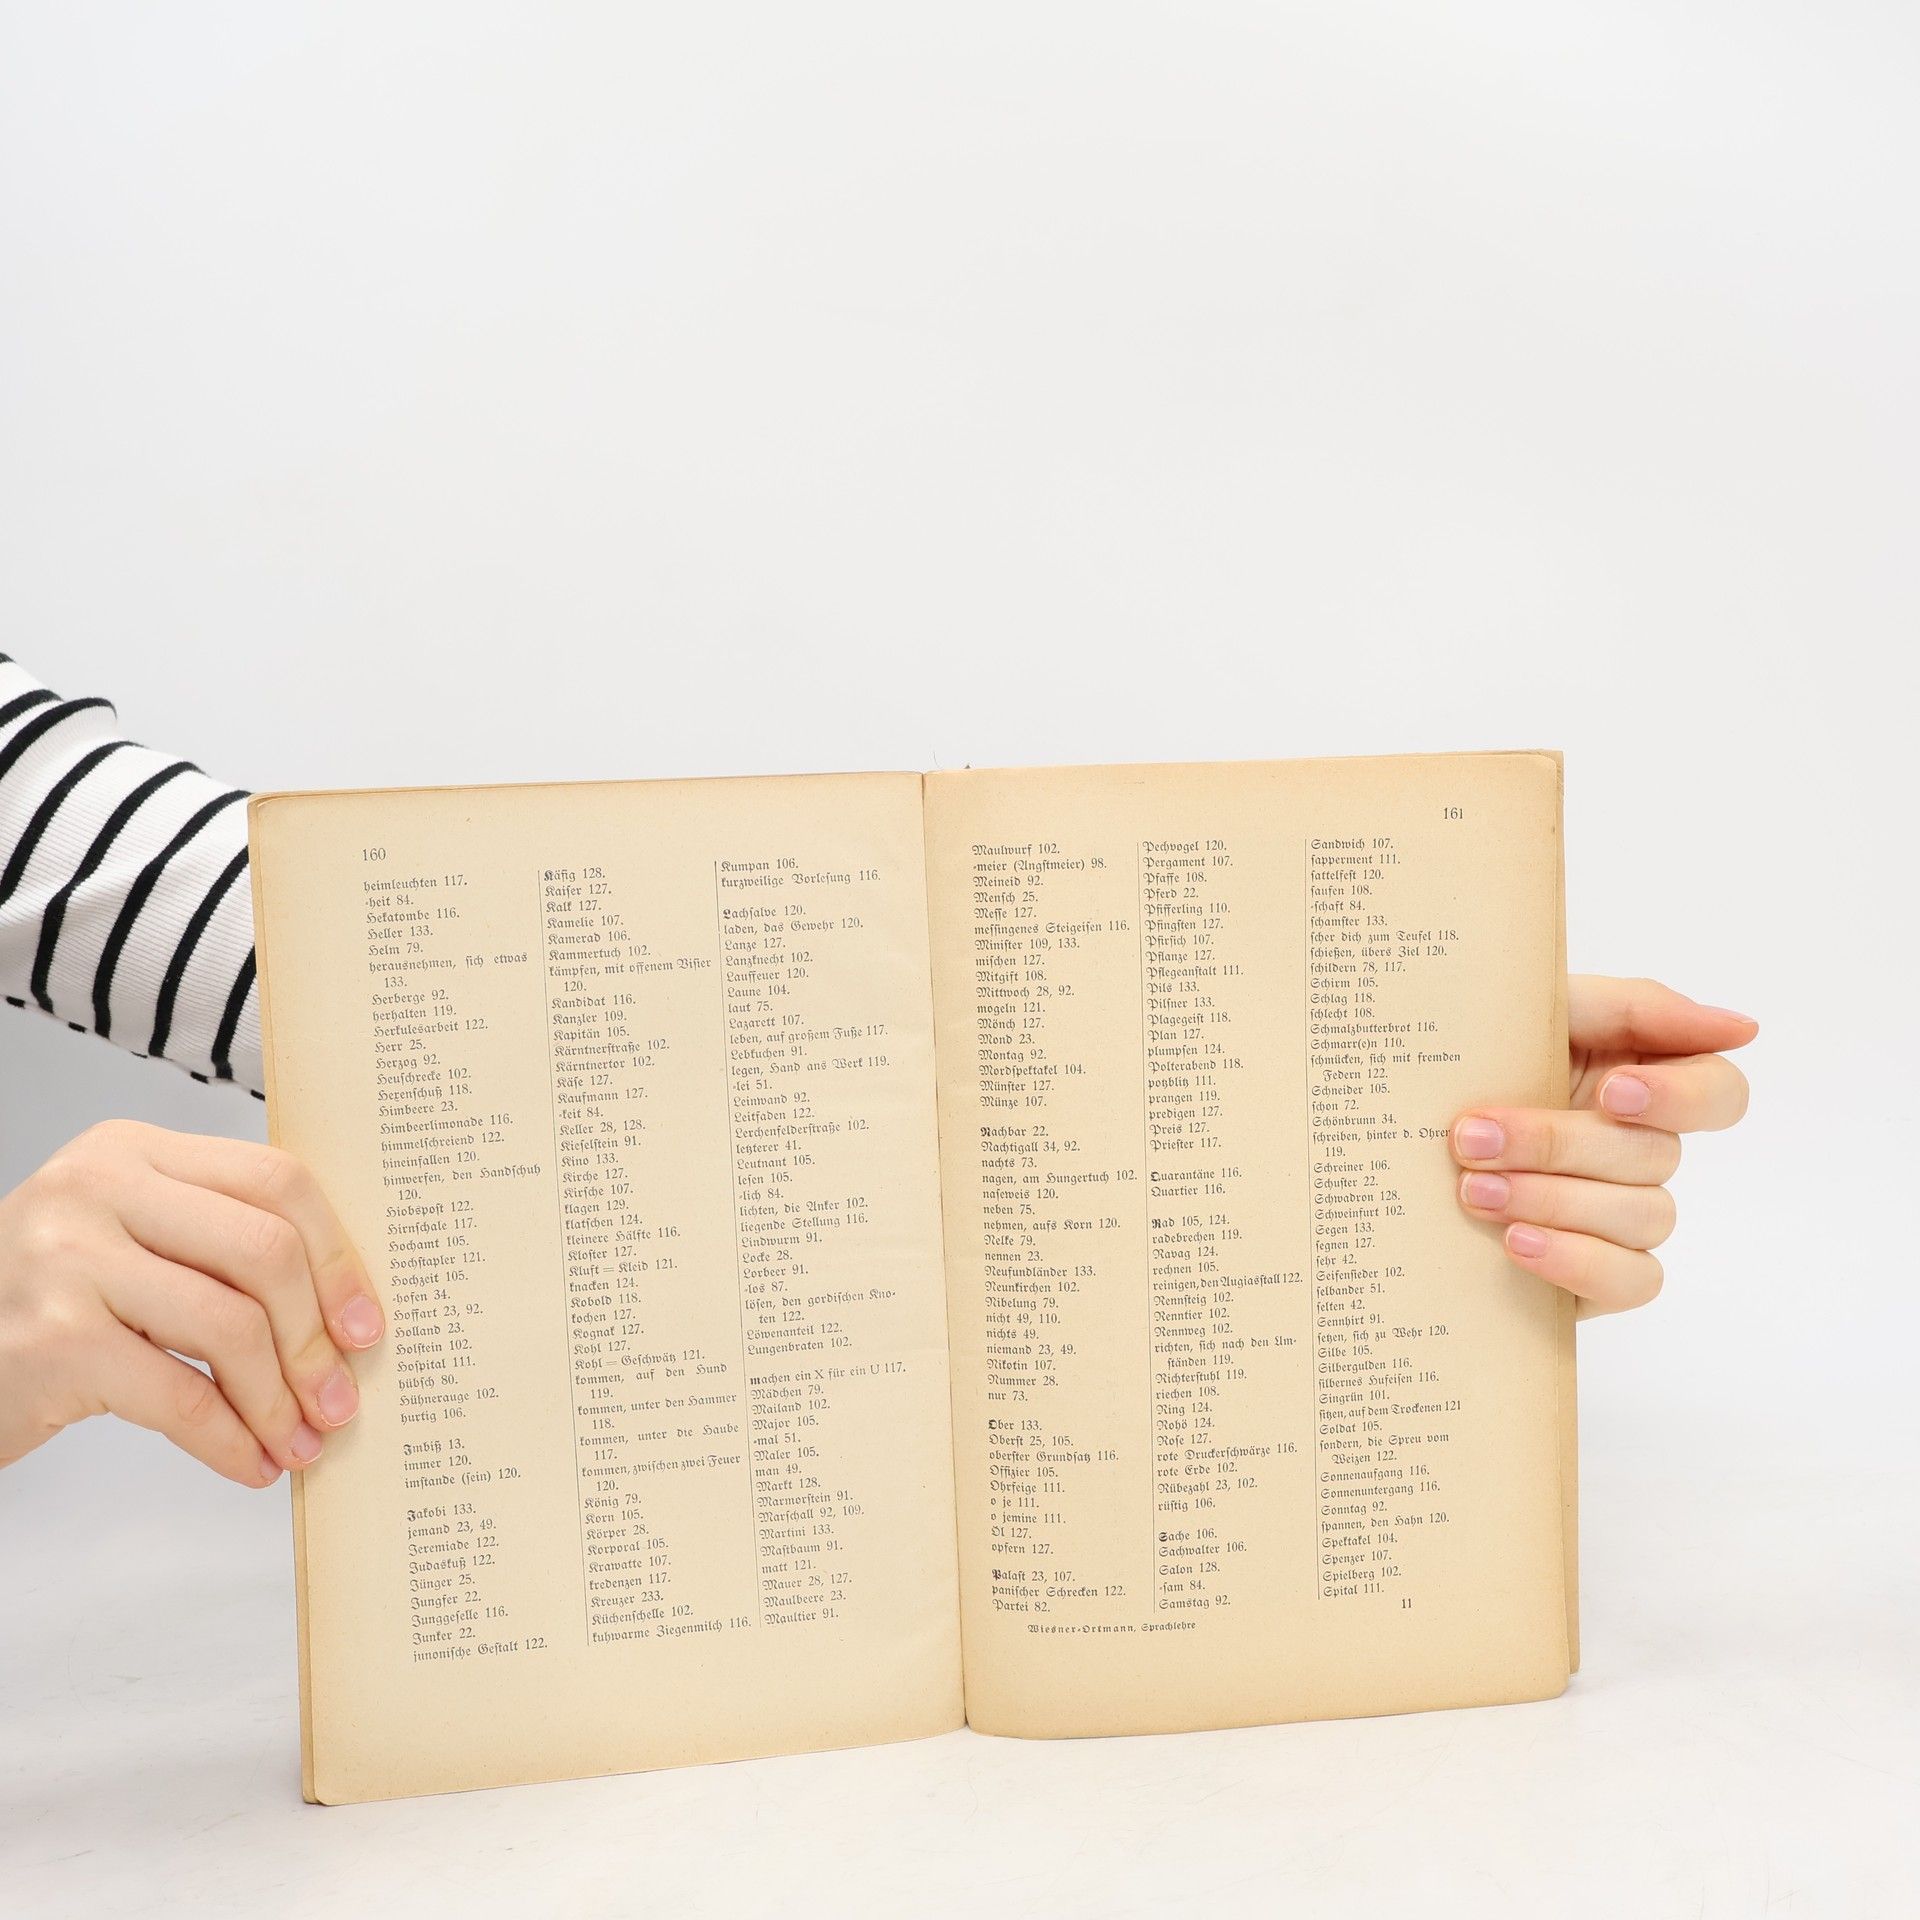 160
heimleuchten 117.
-heit 84.
Hekatombe 116.
Heller 133.
Helm 79.
herausnehmen, ſich etwas
133.
Herberge 92.
herhalten 119.
Herkulesarbeit 122.
Herr 25.
Herzog 92.
Heuſchrecke 102.
Hexenſchuß 118.
Himbeere 23.
Himbeerlimonade 116.
himmelſchreiend 122.
hineinfallen 120.
hinwerfen, den Handſchuh
120.
Hiobspoſt 122.
Hirnſchale 117.
Hochamt 105.
Hochſtapler 121.
Hochzeit 105.
-hofen 34.
Hoffart 23, 92.
Holland 23.
Holſtein 102.
Hoſpital 111.
hübſch 80.
Hühnerauge 102.
hurtig 106.
Imbiß 13.
immer 120.
imſtande (ſein) 120.
Jakobi 133.
jemand 23, 49.
Jeremiade 122.
Judaskuß 122.
Jünger 25.
Jungfer 22.
Junggeſelle 116.
Junker 22.
junoniſche Geſtalt 122.
Käfig 128.
Kaiſer 127.
Kalk 127.
Kamelie 107.
Kamerad 106.
Kammertuch 102.
kämpfen, mit offenem Viſier
120.
Kandidat 116.
Kanzler 109.
Kapitän 105.
Kärntnerſtraße 102.
Kärntnertor 102.
Käſe 127.
Kaufmann 127.
-keit 84.
Keller 28, 128.
Kieſelſtein 91.
Kino 133.
Kirche 127.
Kirſche 107.
klagen 129.
klatſchen 124.
kleinere Hälfte 116.
Kloſter 127.
Kluft = Kleid 121.
knacken 124.
Kobold 118.
kochen 127.
Kognak 127.
Kohl 127.
Kohl = Geſchwätz 121.
kommen, auf den Hund
119.
kommen, unter den Hammer
118.
kommen, unter die Haube
117.
kommen, zwiſchen zwei Feuer
120.
König 79.
Korn 105.
Körper 28.
Korporal 105.
Krawatte 107.
kredenzen 117.
Kreuzer 233.
Küchenſchelle 102.
kuhwarme Ziegenmilch 116.
Kumpan 106.
kurzweilige Vorleſung 116.
Lachſalve 120.
laden, das Gewehr 120.
Lanze 127.
Lanzknecht 102.
Lauffeuer 120.
Laune 104.
laut 75.
Lazarett 107.
leben, auf großem Fuße 117.
Lebkuchen 91.
legen, Hand ans Werk 119.
-lei 51.
Leinwand 92.
Leitfaden 122.
Lerchenfelderſtraße 102.
letzterer 41.
Leutnant 105.
leſen 105.
-lich 84.
lichten, die Anker 102.
liegende Stellung 116.
Lindwurm 91.
Locke 28.
Lorbeer 91.
-los 87.
löſen, den gordiſchen Kno-
ten 122.
Löwenanteil 122.
Lungenbraten 102.
machen ein X für ein U 117.
Mädchen 79.
Mailand 102.
Major 105.
-mal 51.
Maler 105.
man 49.
Markt 128.
Marmorſtein 91.
Marſchall 92, 109.
Martini 133.
Maſtbaum 91.
matt 121.
Mauer 28, 127.
Maulbeere 23.
Maultier 91.
161
Maulwurf 102.
-meier (Angſtmeier) 98.
Meineid 92.
Menſch 25.
Meſſe 127.
meſſingenes Steigeiſen 116.
Miniſter 109, 133.
miſchen 127.
Mitgift 108.
Mittwoch 28, 92.
mogeln 121.
Mönch 127.
Mond 23.
Montag 92.
Mordſpektakel 104.
Münſter 127.
Münze 107.
Nachbar 22.
Nachtigall 34, 92.
nachts 73.
nagen, am Hungertuch 102.
naſeweis 120.
neben 75.
nehmen, aufs Korn 120.
Nelke 79.
nennen 23.
Neufundländer 133.
Neunkirchen 102.
Nibelung 79.
nicht 49, 110.
nichts 49.
niemand 23, 49.
Nikotin 107.
Nummer 28.
nur 73.
Ober 133.
Oberſt 25, 105.
oberſter Grundſatz 116.
Offizier 105.
Ohrfeige 111.
o je 111.
o jemine 111.
Öl 127.
opfern 127.
Palaſt 23, 107.
paniſcher Schrecken 122.
Partei 82.
Pechvogel 120.
Pergament 107.
Pfaffe 108.
Pferd 22.
Pfifferling 110.
Pfingſten 127.
Pfirſich 107.
Pflanze 127.
Pflegeanſtalt 111.
Pils 133.
Pilſner 133.
Plagegeiſt 118.
Plan 127.
plumpſen 124.
Polterabend 118.
potzblitz 111.
prangen 119.
predigen 127.
Preis 127.
Prieſter 117.
Quarantäne 116.
Quartier 116.
Rad 105, 124.
radebrechen 119.
Ravag 124.
rechnen 105.
reinigen, den Augiasſtall 122.
Rennſteig 102.
Renntier 102.
Rennweg 102.
richten, ſich nach den Um-
ſtänden 119.
Richterſtuhl 119.
riechen 108.
Ring 124.
Rohö 124.
Roſe 127.
rote Druckerſchwärze 116.
rote Erde 102.
Rübezahl 23, 102.
rüſtig 106.
Sache 106.
Sachwalter 106.
Salon 128.
-ſam 84.
Samstag 92.
Sandwich 107.
ſapperment 111.
ſattelfeſt 120.
ſaufen 108.
-ſchaft 84.
ſchamſter 133.
ſcher dich zum Teufel 118.
ſchießen, übers Ziel 120.
ſchildern 78, 117.
Schirm 105.
Schlag 118.
ſchlecht 108.
Schmalzbutterbrot 116.
Schmarr(e)n 110.
ſchmücken, ſich mit fremden
Federn 122.
Schneider 105.
ſchon 72.
Schönbrunn 34.
ſchreiben, hinter d. Ohren
119.
Schreiner 106.
Schuſter 22.
Schwadron 128.
Schweinfurt 102.
Segen 133.
ſegnen 127.
ſehr 42.
Seifenſieder 102.
ſelbander 51.
ſelten 42.
Sennhirt 91.
ſetzen, ſich zu Wehr 120.
Silbe 105.
Silbergulden 116.
ſilbernes Hufeiſen 116.
Singrün 101.
ſitzen, auf dem Trockenen 121
Soldat 105.
ſondern, die Spreu vom
Weizen 122.
Sonnenaufgang 116.
Sonnenuntergang 116.
Sonntag 92.
ſpannen, den Hahn 120.
Spektakel 104.
Spenzer 107.
Spielberg 102.
Spital 111.
Wiesner-Ortmann, Sprachlehre
11